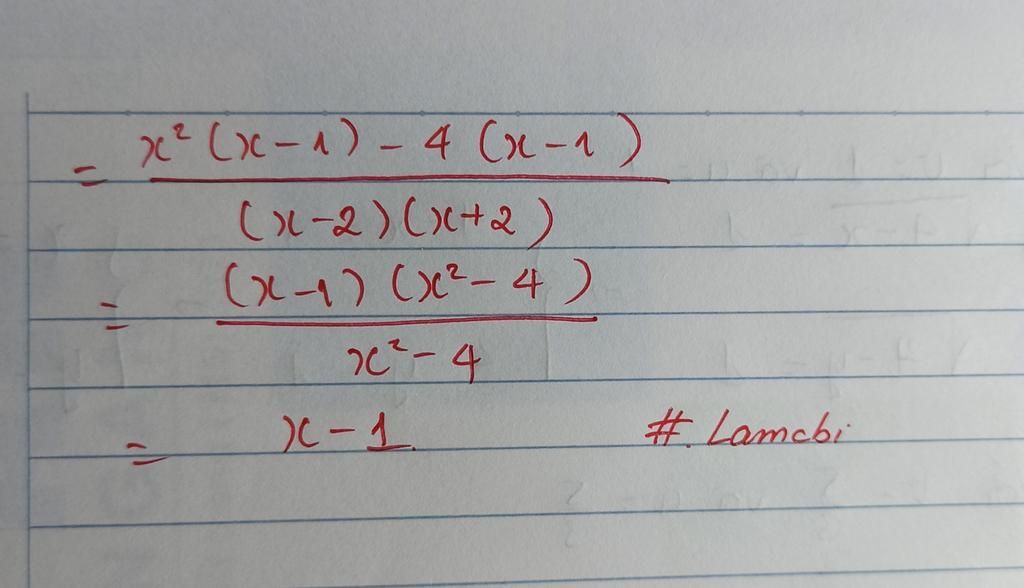 = x² (x - 1) - 4 (x - 1)
(x - 2) (x + 2)
= (x - 1) (x² - 4)
x² - 4
= x - 1 #. Lamcbi